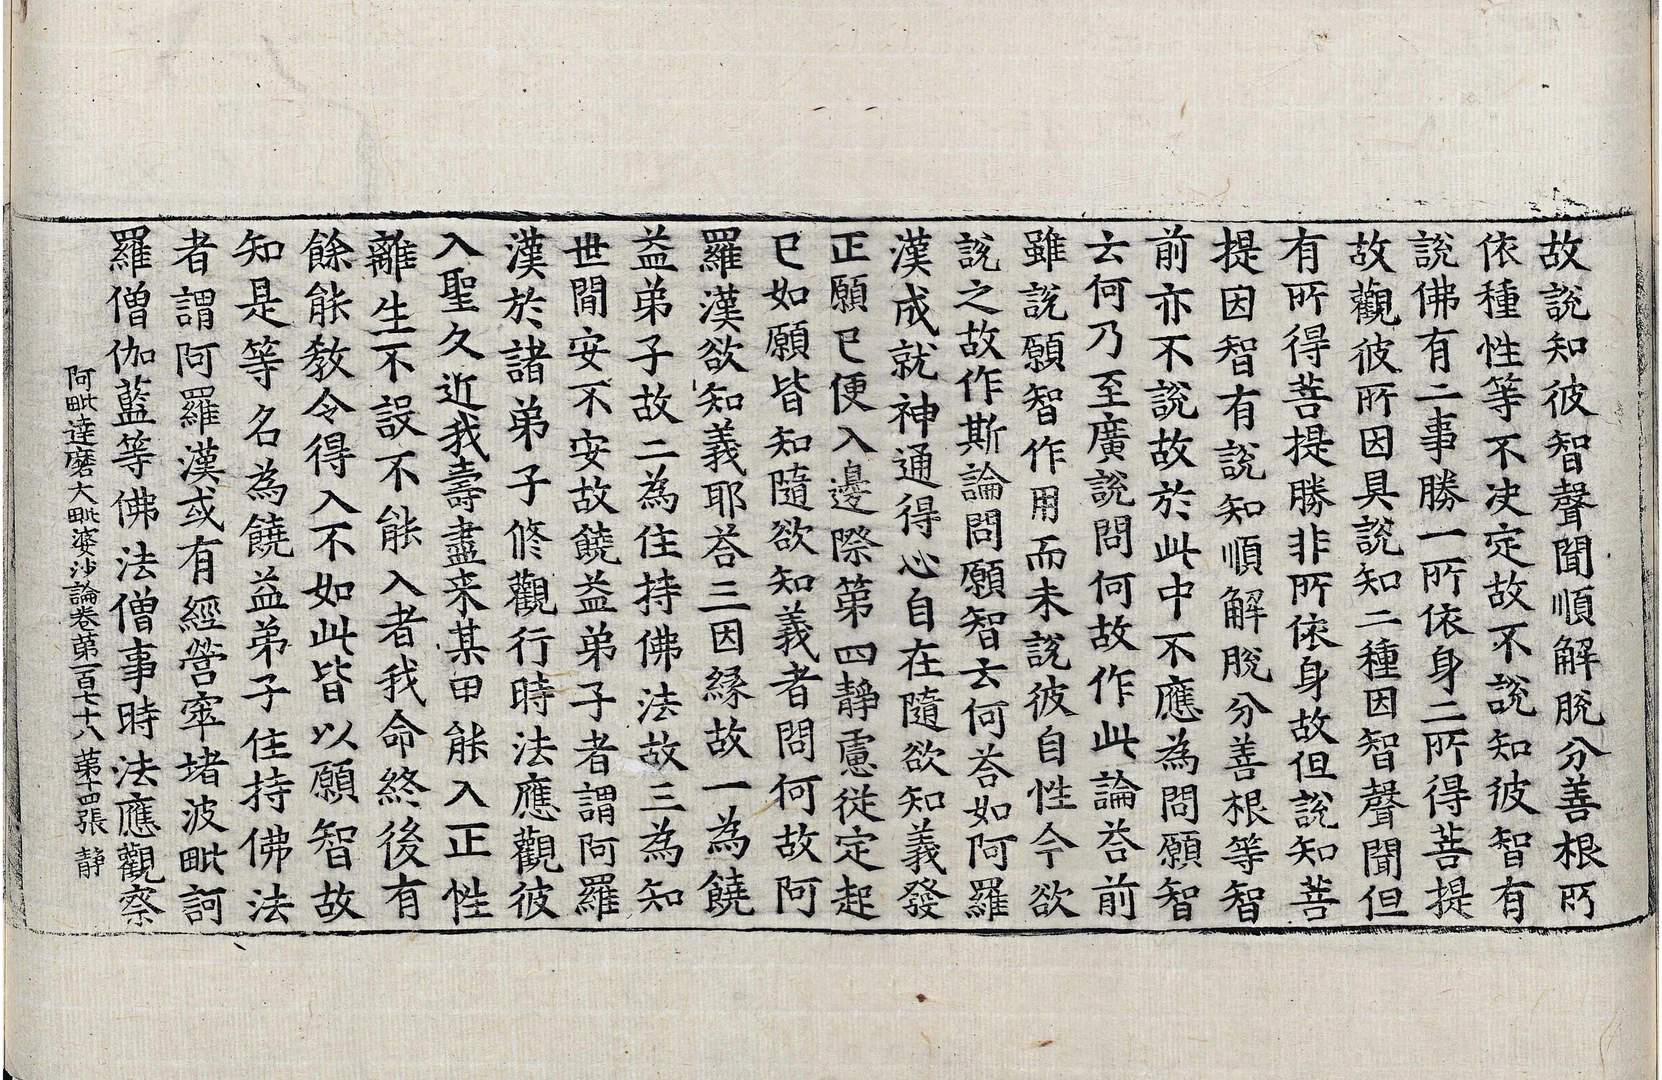 故說知彼智聲聞順解脫分善根所
依種性等不決定故不說知彼智有
說佛有二事勝一所依身二所得菩提
故觀彼所因具說知二種因智聲聞但
有所得菩提勝非所依身故但說知菩
提因智有說知順解脫分善根等智
前亦不說故於此中不應為問願智
云何乃至廣說問何故作此論荅前
雖說願智作用而未說彼自性今欲
說之故作斯論問願智云何荅如阿羅
漢成就神通得心自在隨欲知義發
正願已便入邊際第四靜慮從定起
已如願皆知隨欲知義者問何故阿
羅漢欲知義耶荅三因緣故一為饒
益弟子故二為住持佛法故三為知
世間安不安故饒益弟子者謂阿羅
漢於諸弟子修觀行時法應觀彼
入聖久近我壽盡来某甲能入正性
離生不設不能入者我命終後有
餘能教令得入不如此皆以願智故
知是等名為饒益弟子住持佛法
者謂阿羅漢或有經營窣堵波毗訶
羅僧伽藍等佛法僧事時法應觀察
阿毗達磨大毗婆沙論卷苐一百七十八 苐十四張 静